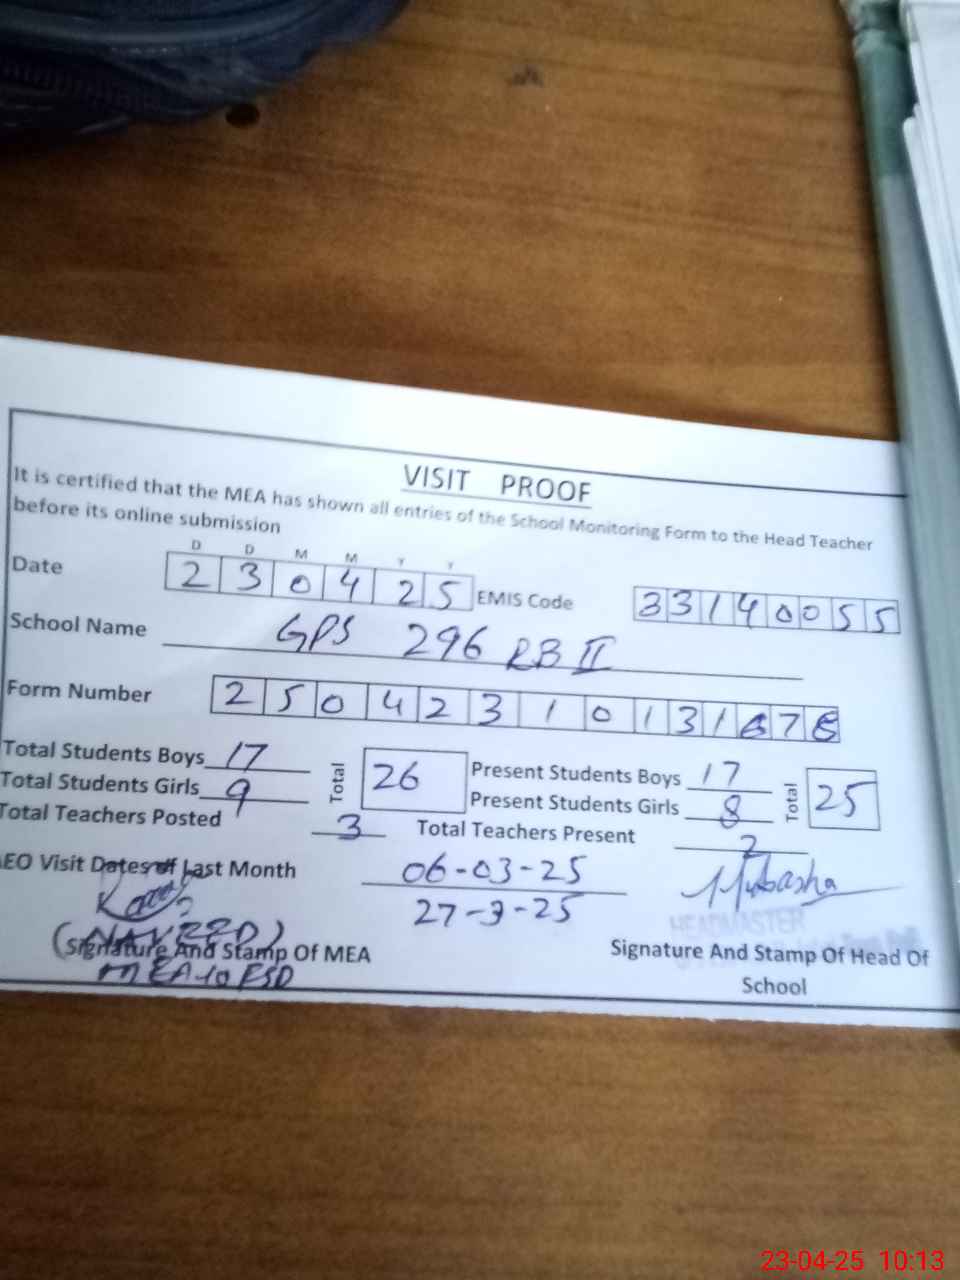 VISIT PROOF
It is certified that the MEA has shown all entries of the School Monitoring Form to the Head Teacher
before its online submission
D D M M Y Y
Date 2 3 0 4 2 5 EMIS Code 3 3 1 4 0 0 5 5
School Name GPS 296 RB II
Form Number 2 5 0 4 2 3 1 0 1 3 1 6 7 8
Total Students Boys 17 Total 26 Present Students Boys 17 Total 25
Total Students Girls 9 Present Students Girls 8
Total Teachers Posted 3 Total Teachers Present 2
AEO Visit Dates of Last Month 06-03-25
27-3-25
HEADMASTER
Signature And Stamp Of MEA
MEA-10 FSD
Signature And Stamp Of Head Of
School
23-04-25 10:13